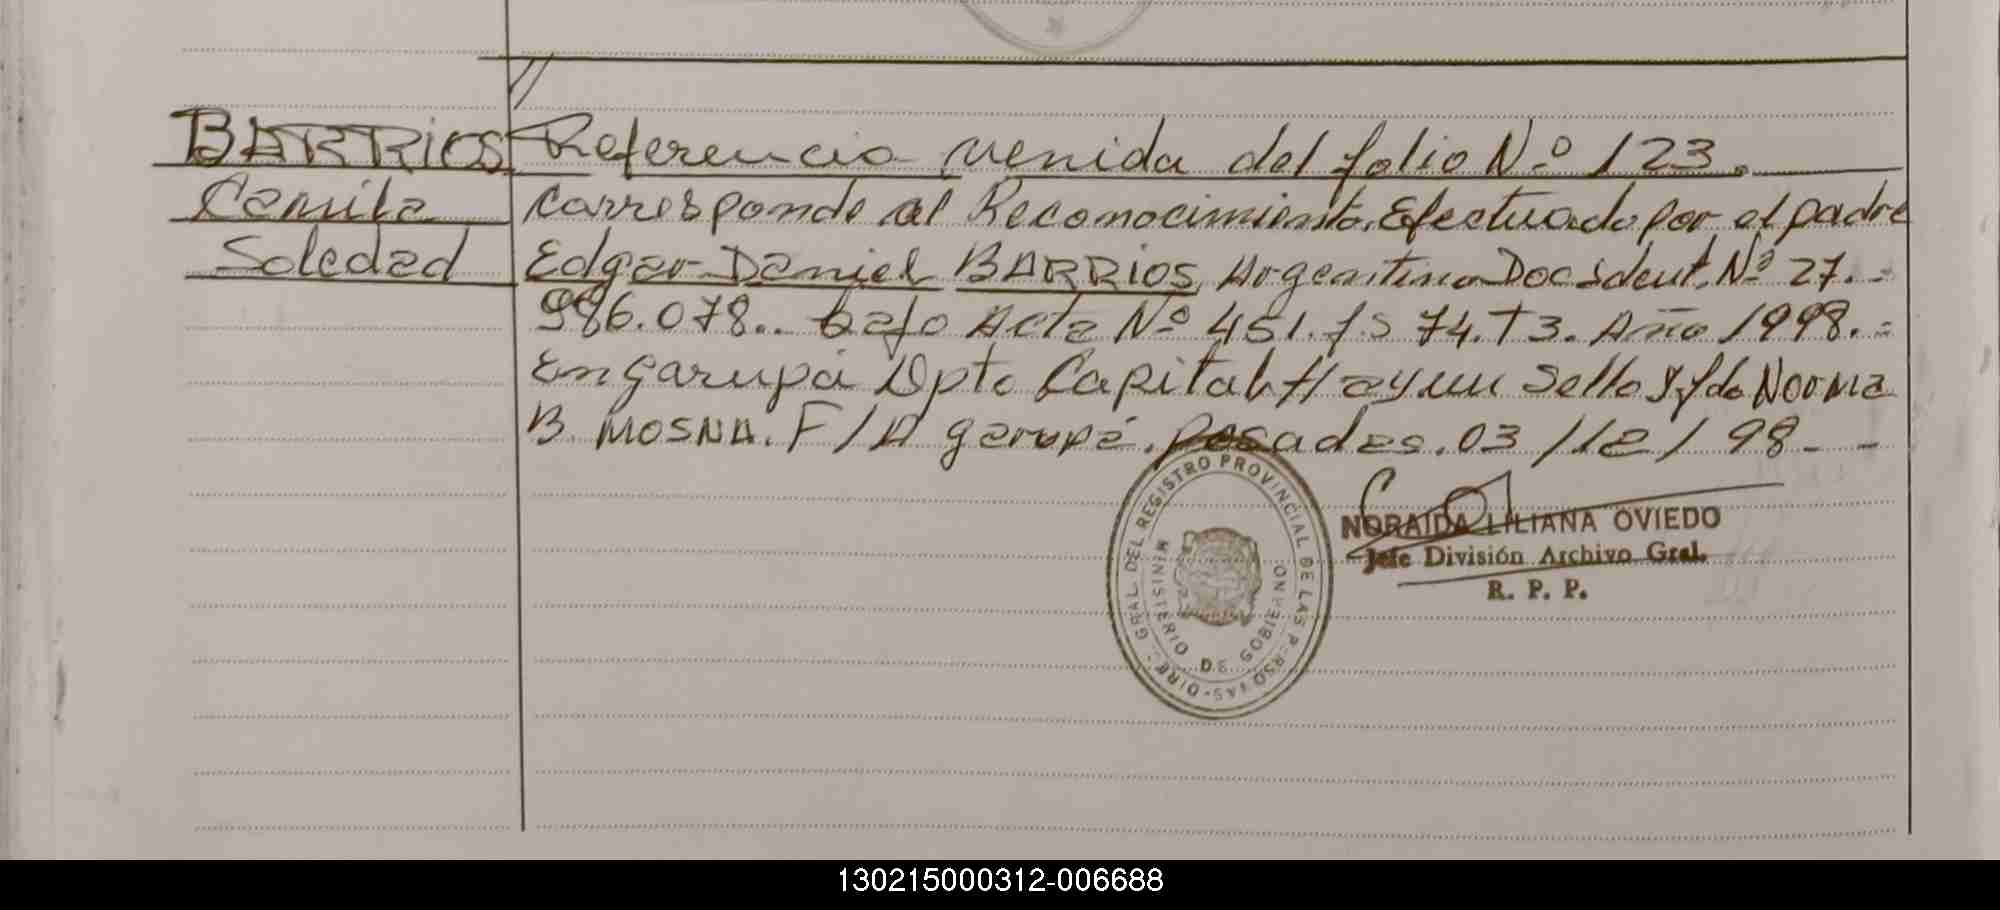 BARRIOS
Camila
Soledad
Referencia venida del folio Nº 123.
Corresponde al Reconocimiento, Efectuado por el padre
Edgar Daniel BARRIOS, Argentino Doc Ident. Nº 27.-
986.078.. bajo Acta Nº 451. fs 74. T 3. Año 1998.-
En garupá Dpto Capital Hay un Sello y fdo Norma
B. MOSNA. F/A garupá. Posadas. 03/12/98- -
DIREC. GRAL. DEL REGISTRO PROVINCIAL DE LAS PERSONAS
MINISTERIO DE GOBIERNO
NORAIDA LILIANA OVIEDO
Jefe División Archivo Gral.
R. P. P.
130215000312-006688